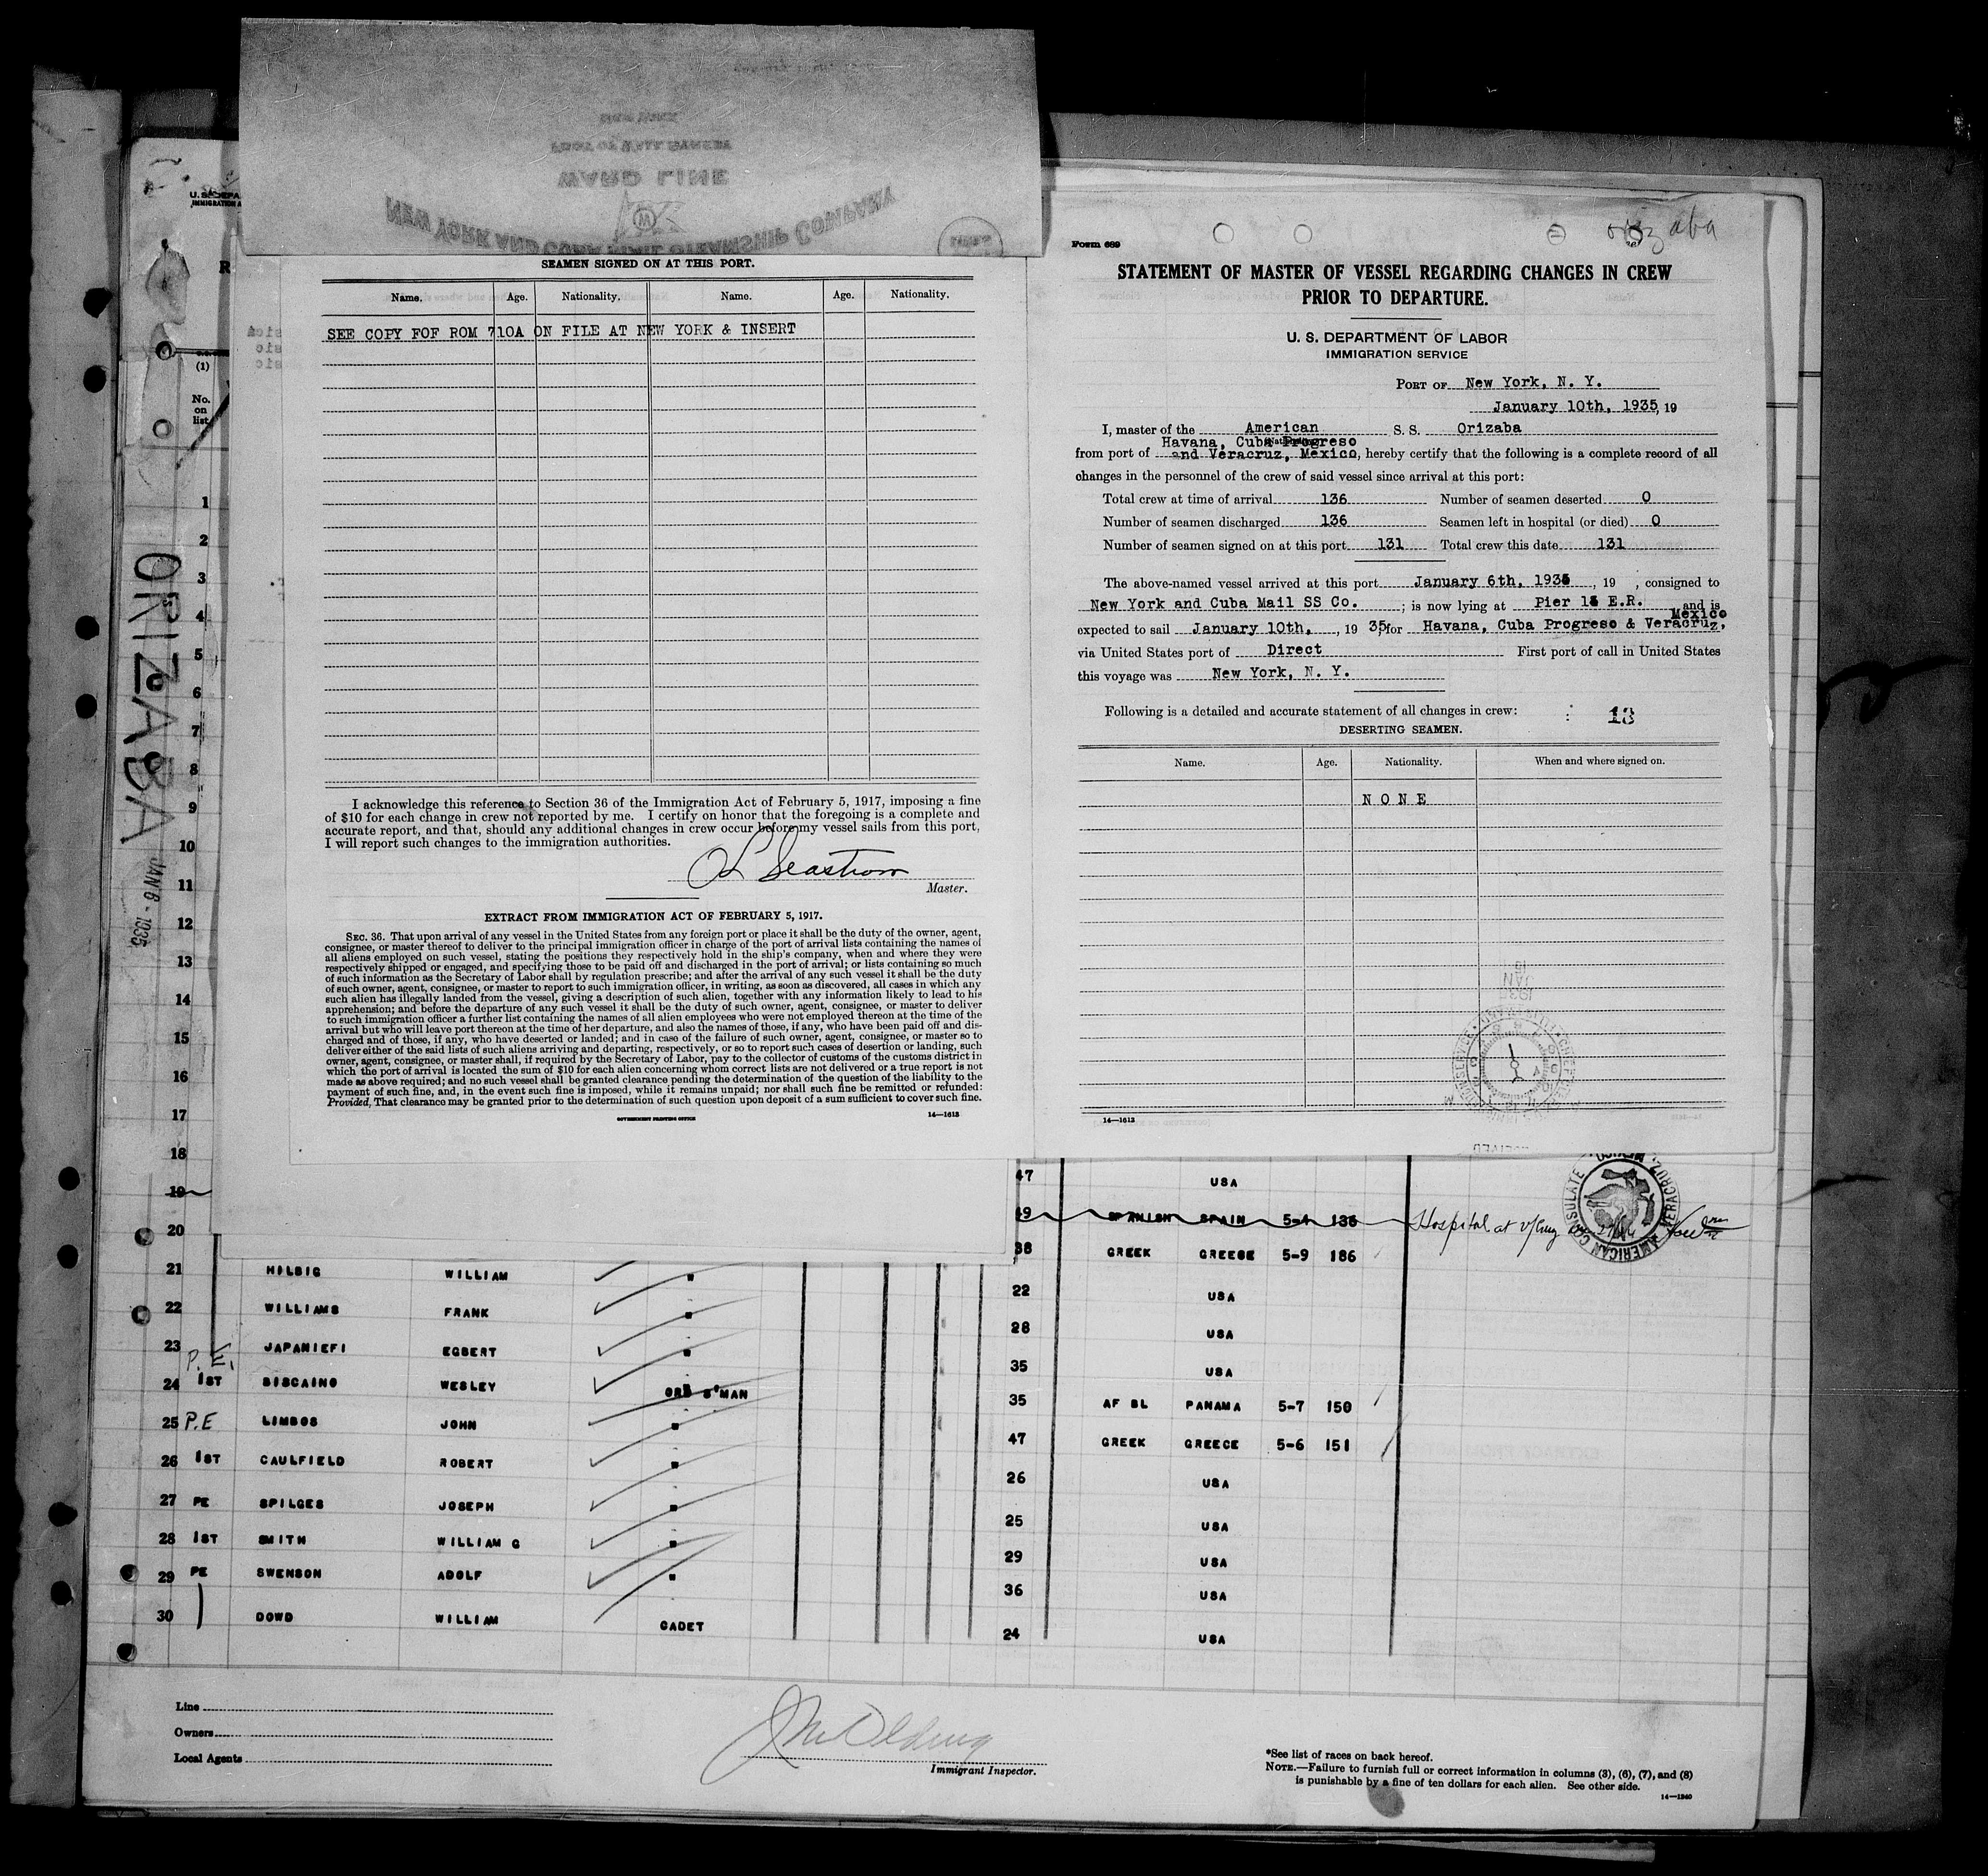 NEW YORK AND CUBA MAIL STEAMSHIP COMPANY
WARD LINE
FOOT OF WALL STREET
NEW YORK
U. S. DEPA
IMMIGRATION
(1)
No.
on
list
ORIZABA
JAN 6 - 1935
SEAMEN SIGNED ON AT THIS PORT.
Name. Age. Nationality. Name. Age. Nationality.
SEE COPY FOF ROM 710A ON FILE AT NEW YORK & INSERT
I acknowledge this reference to Section 36 of the Immigration Act of February 5, 1917, imposing a fine
of $10 for each change in crew not reported by me. I certify on honor that the foregoing is a complete and
accurate report, and that, should any additional changes in crew occur before my vessel sails from this port,
I will report such changes to the immigration authorities.
Master.
EXTRACT FROM IMMIGRATION ACT OF FEBRUARY 5, 1917.
SEC. 36. That upon arrival of any vessel in the United States from any foreign port or place it shall be the duty of the owner, agent,
consignee, or master thereof to deliver to the principal immigration officer in charge of the port of arrival lists containing the names of
all aliens employed on such vessel, stating the positions they respectively hold in the ship's company, when and where they were
respectively shipped or engaged, and specifying those to be paid off and discharged in the port of arrival; or lists containing so much
of such information as the Secretary of Labor shall by regulation prescribe; and after the arrival of any such vessel it shall be the duty
of such owner, agent, consignee, or master to report to such immigration officer, in writing, as soon as discovered, all cases in which any
such alien has illegally landed from the vessel, giving a description of such alien, together with any information likely to lead to his
apprehension; and before the departure of any such vessel it shall be the duty of such owner, agent, consignee, or master to deliver
to such immigration officer a further list containing the names of all alien employees who were not employed thereon at the time of the
arrival but who will leave port thereon at the time of her departure, and also the names of those, if any, who have been paid off and dis-
charged and of those, if any, who have deserted or landed; and in case of the failure of such owner, agent, consignee, or master so to
deliver either of the said lists of such aliens arriving and departing, respectively, or so to report such cases of desertion or landing, such
owner, agent, consignee, or master shall, if required by the Secretary of Labor, pay to the collector of customs of the customs district in
which the port of arrival is located the sum of $10 for each alien concerning whom correct lists are not delivered or a true report is not
made as above required; and no such vessel shall be granted clearance pending the determination of the question of the liability to the
payment of such fine, and, in the event such fine is imposed, while it remains unpaid; nor shall such fine be remitted or refunded:
Provided, That clearance may be granted prior to the determination of such question upon deposit of a sum sufficient to cover such fine.
GOVERNMENT PRINTING OFFICE 14—1613
Orizaba
Form 689
STATEMENT OF MASTER OF VESSEL REGARDING CHANGES IN CREW
PRIOR TO DEPARTURE.
U. S. DEPARTMENT OF LABOR
IMMIGRATION SERVICE
PORT OF New York, N. Y.
January 10th, 1935, 19
I, master of the American S. S. Orizaba
Havana, Cuba Progreso
from port of and Veracruz, Mexico, hereby certify that the following is a complete record of all
changes in the personnel of the crew of said vessel since arrival at this port:
Total crew at time of arrival 136 Number of seamen deserted 0
Number of seamen discharged 136 Seamen left in hospital (or died) 0
Number of seamen signed on at this port 131 Total crew this date 131
The above-named vessel arrived at this port January 6th, 1935, 19 , consigned to
New York and Cuba Mail SS Co. ; is now lying at Pier 13 E.R. and is
Mexico
expected to sail January 10th, , 19 35, for Havana, Cuba Progreso & Veracruz,
via United States port of Direct First port of call in United States
this voyage was New York, N. Y.
Following is a detailed and accurate statement of all changes in crew: 13
DESERTING SEAMEN.
Name. Age. Nationality. When and where signed on.
NONE
14—1613
1
2
3
4
5
6
7
8
9
10
11
12
13
14
15
16
17
18 47 USA
19 49 SPANISH SPAIN 5-4 136 Hospital at
AMERICAN CONSULATE VERACRUZ, MEXICO
20 38 GREEK GREECE 5-9 186
21 HILBIG WILLIAM " 22 USA
22 WILLIAMS FRANK " 28 USA
23 P.E JAPANIEFI EGBERT " 35 USA
24 1ST BISCAINO WESLEY ORD S'MAN 35 AF BL PANAMA 5-7 150
25 P.E LIMBOS JOHN " 47 GREEK GREECE 5-6 151
26 1ST CAULFIELD ROBERT " 26 USA
27 PE SPILGES JOSEPH " 25 USA
28 1ST SMITH WILLIAM G " 29 USA
29 PE SWENSON ADOLF " 36 USA
30 DOWD WILLIAM CADET 24 USA
Line
Owners
Local Agents
Immigrant Inspector.
*See list of races on back hereof.
NOTE.—Failure to furnish full or correct information in columns (3), (6), (7), and (8)
is punishable by a fine of ten dollars for each alien. See other side.
14—1240